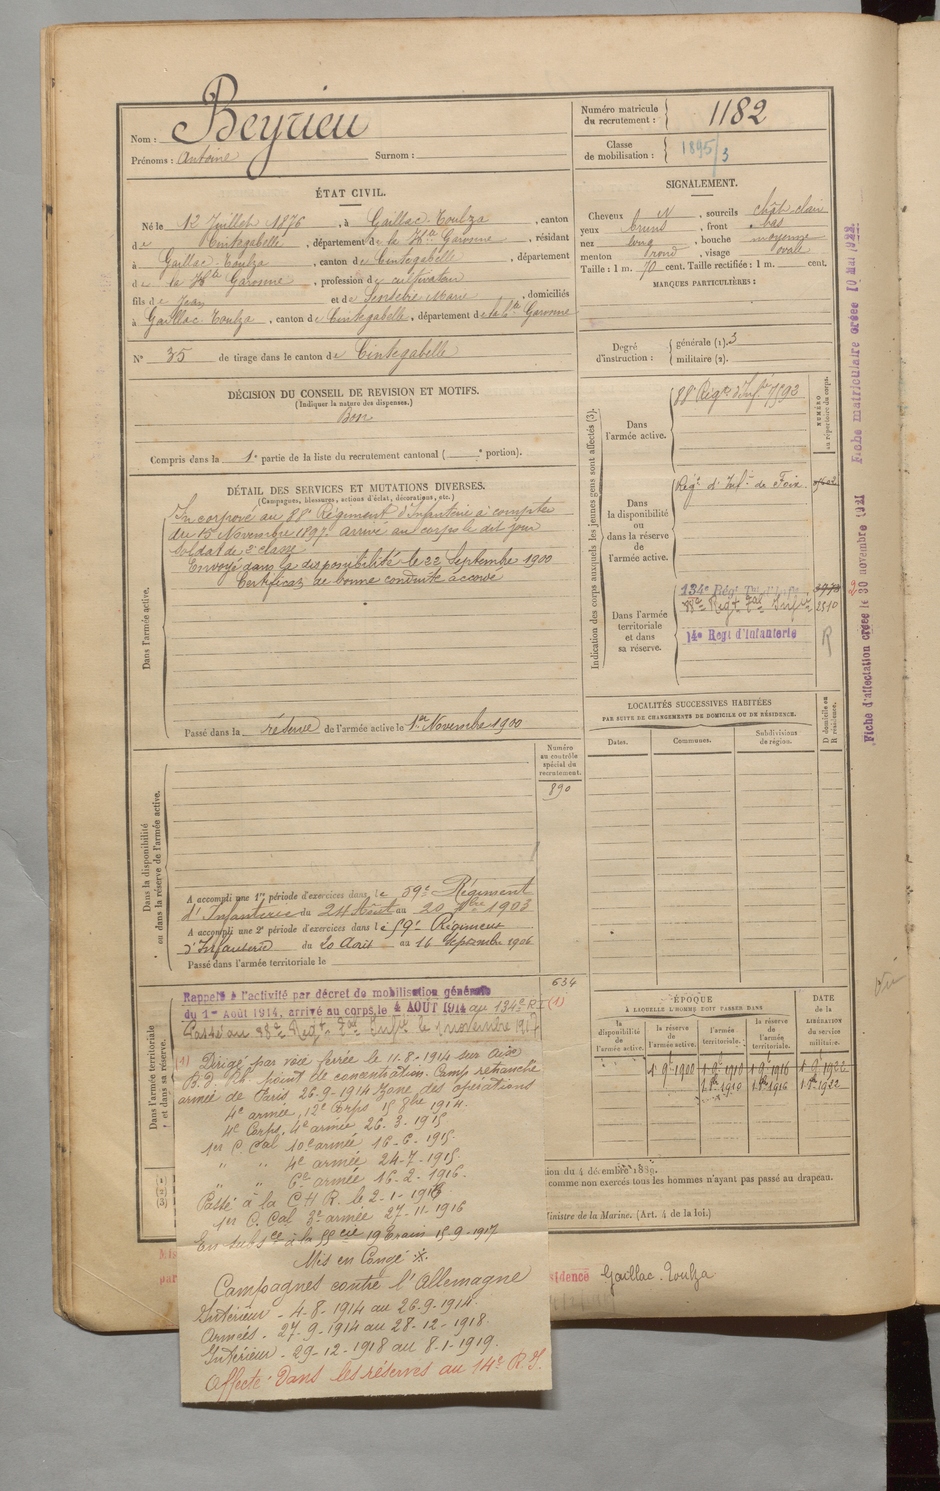 Nom : Beyrieu
Prénoms : Antoine Surnom :
Numéro matricule du recrutement : 1182
Classe de mobilisation : 1895/3
ÉTAT CIVIL.
Né le 12 Juillet 1876, à Gaillac-Toulza, canton
de Cintegabelle, département de la Hte Garonne, résidant
à Gaillac-Toulza, canton de Cintegabelle, département
de la Hte Garonne, profession de cultivateur
fils de Jean et de Marie, domiciliés
à Gaillac-Toulza, canton de Cintegabelle, département de la Hte Garonne
N° 35 de tirage dans le canton de Cintegabelle
SIGNALEMENT.
Cheveux N, sourcils chât clair
yeux bruns, front bas
nez long, bouche moyenne
menton rond, visage ovale
Taille : 1 m. 70 cent. Taille rectifiée : 1 m. cent.
MARQUES PARTICULIÈRES :
Degré d'instruction : générale (1). 3
militaire (2).
DÉCISION DU CONSEIL DE REVISION ET MOTIFS.
(Indiquer la nature des dispenses.)
Bon
Compris dans la 1e partie de la liste du recrutement cantonal ( e portion).
DÉTAIL DES SERVICES ET MUTATIONS DIVERSES.
(Campagnes, blessures, actions d'éclat, décorations, etc.)
Dans l'armée active.
Incorporé au 88e Régiment d'Infanterie à compter
du 15 Novembre 1897. arrivé au corps le dit jour
soldat de 2e classe
Envoyé dans la disponibilité le 22 Septembre 1900
Certificat de bonne conduite accordé
Passé dans la réserve de l'armée active le 1er Novembre 1900
Indication des corps auxquels les jeunes gens sont affectés (3).
NUMÉRO au répertoire du corps.
Dans l'armée active.
88e Régt d'Infie 7592
Dans la disponibilité ou dans la réserve de l'armée active.
Régt d'Infie de Foix.
Dans l'armée territoriale et dans sa réserve.
134e Régt
88e Régt Tal Infie 2510
14e Regt d'Infanterie R
Fiche d'affectation créée le 30 novembre 1921
Fiche matriculaire créée 10 Mai 1922
LOCALITÉS SUCCESSIVES HABITÉES
PAR SUITE DE CHANGEMENTS DE DOMICILE OU DE RÉSIDENCE.
Dates. Communes. Subdivisions de région. D domicile ou R résidence.
Numéro au contrôle spécial du recrutement.
890
Dans la disponibilité ou dans la réserve de l'armée active.
A accompli une 1re période d'exercices dans le 59e Régiment
d'Infanterie du 24 Août au 20 7bre 1903
A accompli une 2e période d'exercices dans le 59e Régiment
d'Infanterie du 20 Août au 16 Septembre 1906
Passé dans l'armée territoriale le
634
Dans l'armée territoriale et dans sa réserve.
Rappelé à l'activité par décret de mobilisation générale
du 1er Août 1914, arrivé au corps le 4 AOUT 1914 au 134e R I (1)
Passé au 88e Régt Tal Infie le 1 novembre 191
(1) Dirigé par voie ferrée le 11-8-1914 sur Aisé
point de concentration. Camp retranché
armée de Paris 26-9-1914 Zone des opérations
4e armée, 12e Corps 15 8bre 1914.
4e Corps, 4e armée 26-3-1915
1er C. Cal 10e armée 16-6-1915.
" " 4e armée 24-7-1915.
" " 6e armée 16-2-1916.
Passé à la C H R. le 2-1-1918
1er C. Cal 3e armée 27-11-1916
En subsce à la 55e cie 19e Train 15-9-1917
Mis en Congé
Campagnes contre l'Allemagne
Intérieur - 4-8-1914 au 26-9-1914.
Armées - 27-9-1914 au 28-12-1918.
Intérieur - 29-12-1918 au 8-1-1919.
Affecté Dans les réserves au 14e R.I.
ÉPOQUE
À LAQUELLE L'HOMME DOIT PASSER DANS
la disponibilité de l'armée active. la réserve de l'armée active. l'armée territoriale. la réserve de l'armée territoriale.
DATE de la LIBÉRATION du service militaire.
1 9e 1900 1 9e 1910 1 9e 1916 1 9e 1922
1 8e 1910 1 8e 1916 1 8e 1922
tion du 4 décembre 1889.
comme non exercés tous les hommes n'ayant pas passé au drapeau.
Ministre de la Marine. (Art. 4 de la loi.)
sidence Gaillac-Toulza